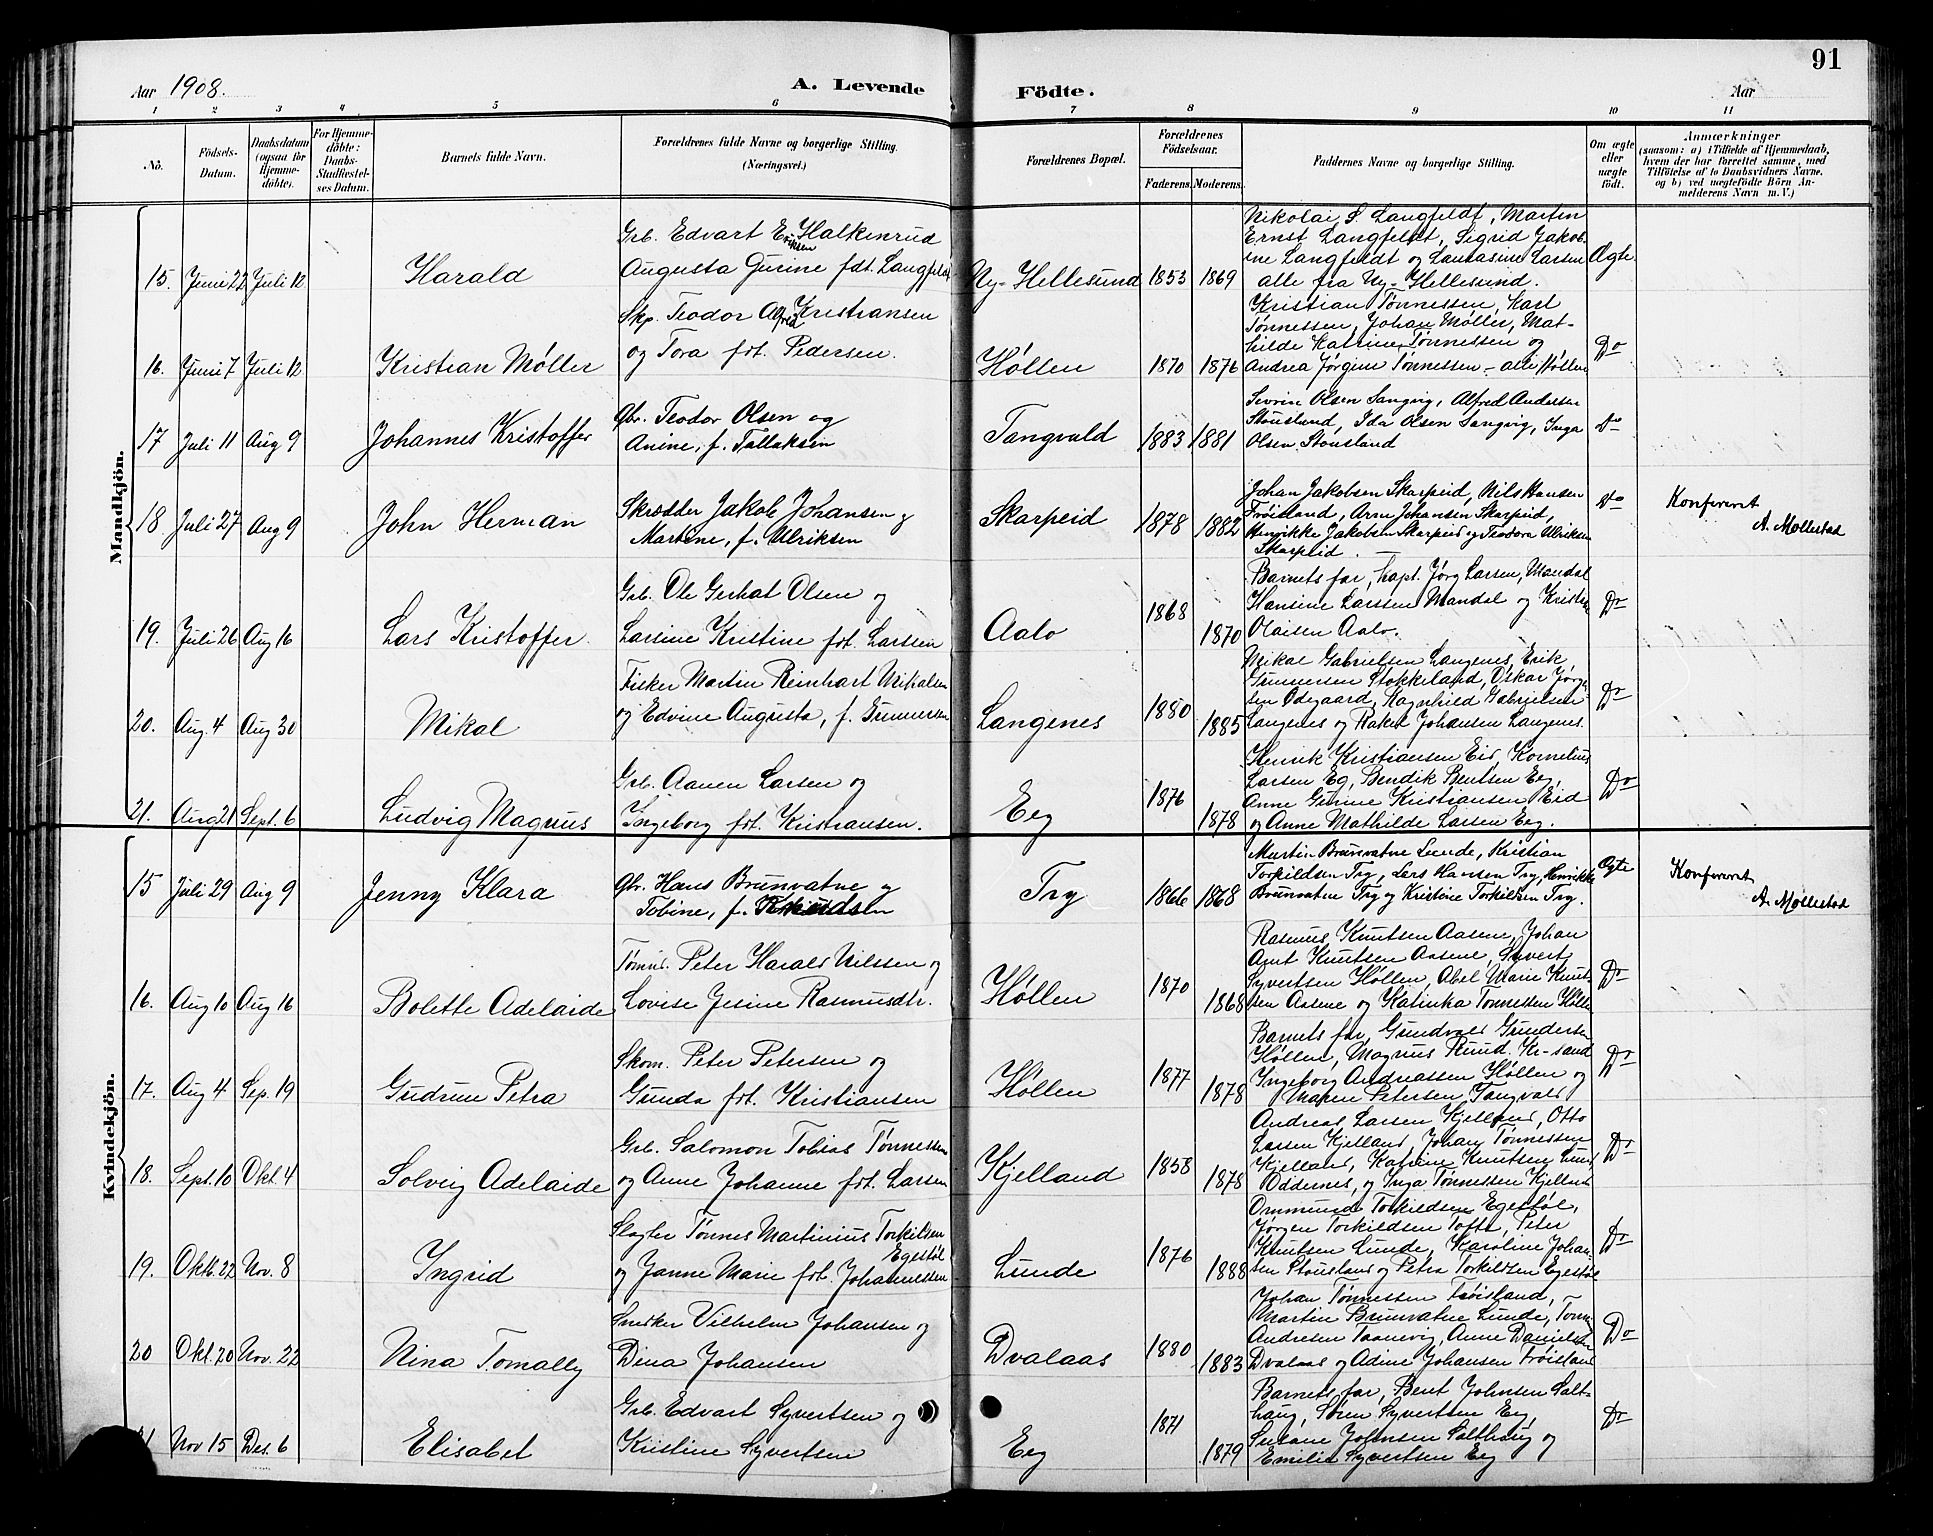 91
Aar 1908. A. Levende Födte. Aar
1 2 3 4 5 6 7 8 9 10 11
No. Födsels-Datum. Daabsdatum (ogsaa for Hjemme-döbte). For Hjemme-döbte: Daabs-Stadfæstel-ses Datum. Barnets fulde Navn. Forældrenes fulde Navne og borgerlige Stilling. (Næringsvei.) Forældrenes Bopæl. Forældrenes Födselsaar. Faderens. Moderens. Faddernes Navne og borgerlige Stilling. Om ægte eller uægte födt. Anmærkninger (saasom: a) i Tilfælde af Hjemmedaab, hvem der har forrettet samme, med Tilföielse af to Daabsvidners Navne, og b) ved uægtefödte Börn Anmelderens Navn m. V.)
Mandkjön.
15. Juni 22 Juli 12 Harald
Grb. Edvart Eriksen Halkinrud
Augusta Gurine fdt. Langfeldt
Ny-Hellesund 1853 1869
Nikolai S. Langfeldt, Martin
Ernst Langfeldt, Sigrid Jakob-
ine Langfeldt og Laurasine Larsen
alle fra Ny-Hellesund.
Ægte
16. Juni 7 Juli 12 Kristian Møller
Skp. Teodor Alfred Kristiansen
og Tora fdt. Pedersen.
Høllen 1870 1876
Kristian Tønnessen, Karl
Tønnessen, Johan Møller, Mat-
hilde Katrine Tønnessen og
Andrea Jørgine Tønnessen - alle Høllen
Do
17 Juli 11 Aug 9 Johannes Kristoffer
Gbr. Teodor Olsen og
Anine, f. Tallaksen
Tangvald 1883 1881
Sevrin Olsen Sangvig, Alfred Andersen
Stousland, Ida Olsen Sangvig, Inga
Olsen Stousland
Do
18 Juli 27 Aug 9 John Herman
Skrædder Jakob Johansen og
Martine, f. Ulriksen
Skarpeid 1878 1882
Johan Jakobsen Skarpeid, Nils Hansen
Frøisland, Arne Johansen Skarpeid,
Henrikke Jakobsen Skarpeid og Teodora Ulriksen
Skarpeid.
Do
Konfereret
A. Møllestad
19. Juli 26 Aug 16 Lars Kristoffer
Grb. Ole Gerhat Olsen og
Larsine Kristine fdt. Larssen
Aalo 1868 1870
Barnets far, kapt. Jørg Larsen, Mandal
Hansine Larssen Mandal og Kristine
Olaisen Aalo.
Do
20. Aug. 4 Aug 30 Mikal
Fisker Martin Reinhart Mikalsen
og Edvine Augusta, f. Gunnersen
Langenes 1880 1885
Mikal Gabrielsen Langenes, Erik
Gunnersen Stokkeland, Oskar Jørgen-
sen Ødegaard, Ragnhild Gabrielsen
Langenes og Rakel Johansen Langenes.
Do
21. Aug 21 Sept. 6 Ludvig Magnus
Grb. Aanen Larsen og
Ingeborg fdt. Kristiansen.
Eeg 1876 1878
Henrik Kristiansen Eid, Kornelius
Larsen Eg, Bendik Bentsen Eeg,
Anne Gurine Kristiansen Eid
og Anne Mathilde Larsen Eeg.
Do
Kvindekjön.
15 Juli 29 Aug 9 Jenny Klara
Gbr. Hans Brunvatne og
Tobine, f.
Try 1866 1868
Martin Brunvatne Lunde, Kristian
Torkildsen Try, Lars Hansen Try, Henrikke
Brunvatne Try og Kristine Torkildsen Try.
Ægte
Konfereret
A. Møllestad
16. Aug 10 Aug 16 Bolette Adelaide
Tømm. Peter Harald Nilssen og
Lovise Jesine Rasmusdtr.
Høllen 1870 1868
Rasmus Knutsen Aasene, Johan
Arnt Knutsen Aasene, Syvert
Syvertsen Høllen, Abel Marie Knut-
sen Aasene og Katinka Tønnessen Høllen
Do
17. Aug 4 Sep. 19 Gudrun Petra
Skom. Peter Petersen og
Gunda fdt. Kristiansen
Høllen 1877 1878
Barnets far, Gundvald Gundersen
Høllen, Magnus Ruud. Kr-sand
Ingeborg Andreassen Høllen og
Maren Petersen, Tangvald
Do
18. Sept. 10 Okt. 4 Solveig Adelaide
Grb. Salomon Tobias Tønnessen
og Anne Johanne fdt. Larsen
Kjelland 1858 1878
Andreas Larsen Kjelland, Otto
Larsen Kjelland, Johan Tønnessen
Kjelland, Katrine Knutsen Lund
Oddernes, og Inga Tønnessen Kjelland
Do
19. Oktb. 22 Nov. 8 Ingrid
Slagter Tønnes Martinius Torkildsen
Egestøl
og Janne Marie fdt. Johannessen
Lunde 1876 1888
Ommund Torkildsen Egestøl,
Jørgen Torkildsen Toft, Peter
Knutsen Lunde, Karoline Johan-
sen Stousland og Petra Torkildsen Egestøl
Do
20 Okt. 20 Nov. 22 Nina Tomally
Snekker Vilhelm Johansen og
Dina Johansen
Dvalaas 1880 1883
Johan Tønnessen Frøisland,
Martin Brunvatne Lunde, Tom
Andresen Taanevig, Anne Danielsen
Dvalaas og Adine Johansen Frøisland
Do
21 Nov 15 Des. 6 Elisabet
Grb. Edvart Syvertsen og
Kristine Syvertsen
Eeg 1871 1879
Barnets far, Bent Johnsen Salt-
haug, Søren Syvertsen Eeg
Susane Johnsen Salthaug og
Emilie Syvertsen Eeg
Do